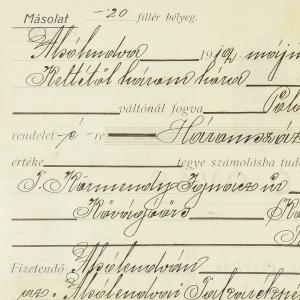 Másolat -"20 fillér bélyeg.
Alsólendva 1912. május
Kelttől három hóra
váltónál fogva
rendelet -é- re Háromszáz
értéke tegye számolásba
T. Körmendy Ignácz úr
Kővágóörs
Fizetendő Alsólendván
az Alsólendvai Takarék